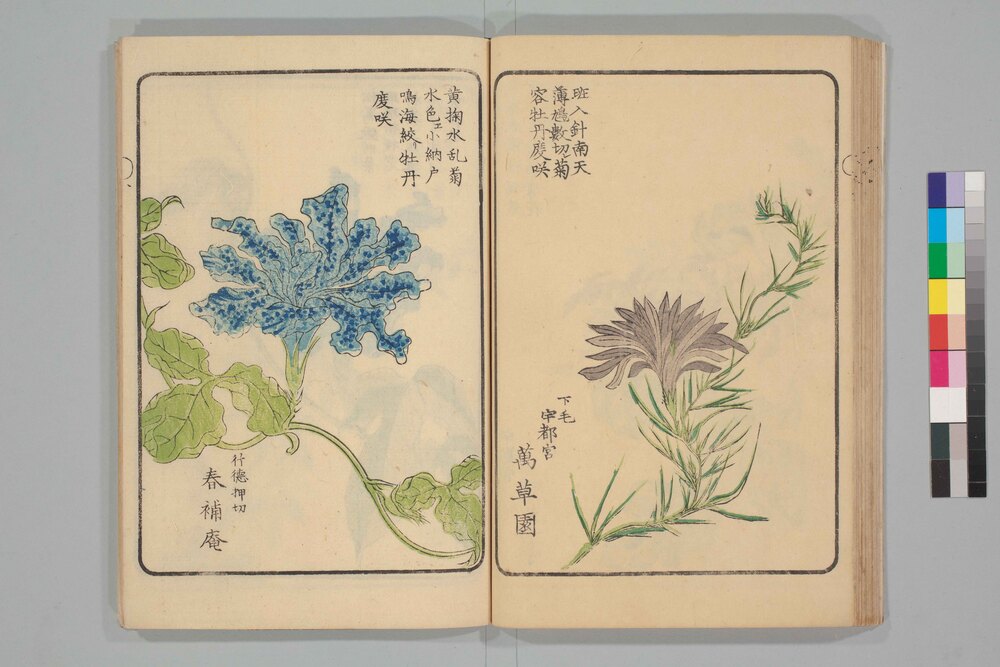 斑入針南天
薄鼠數切菊
容牡丹度咲
下毛
宇都宮
萬草園
黄掬水乱菊
水色エ小納戸
鳴海絞リ牡丹
度咲
行德押切
春補庵